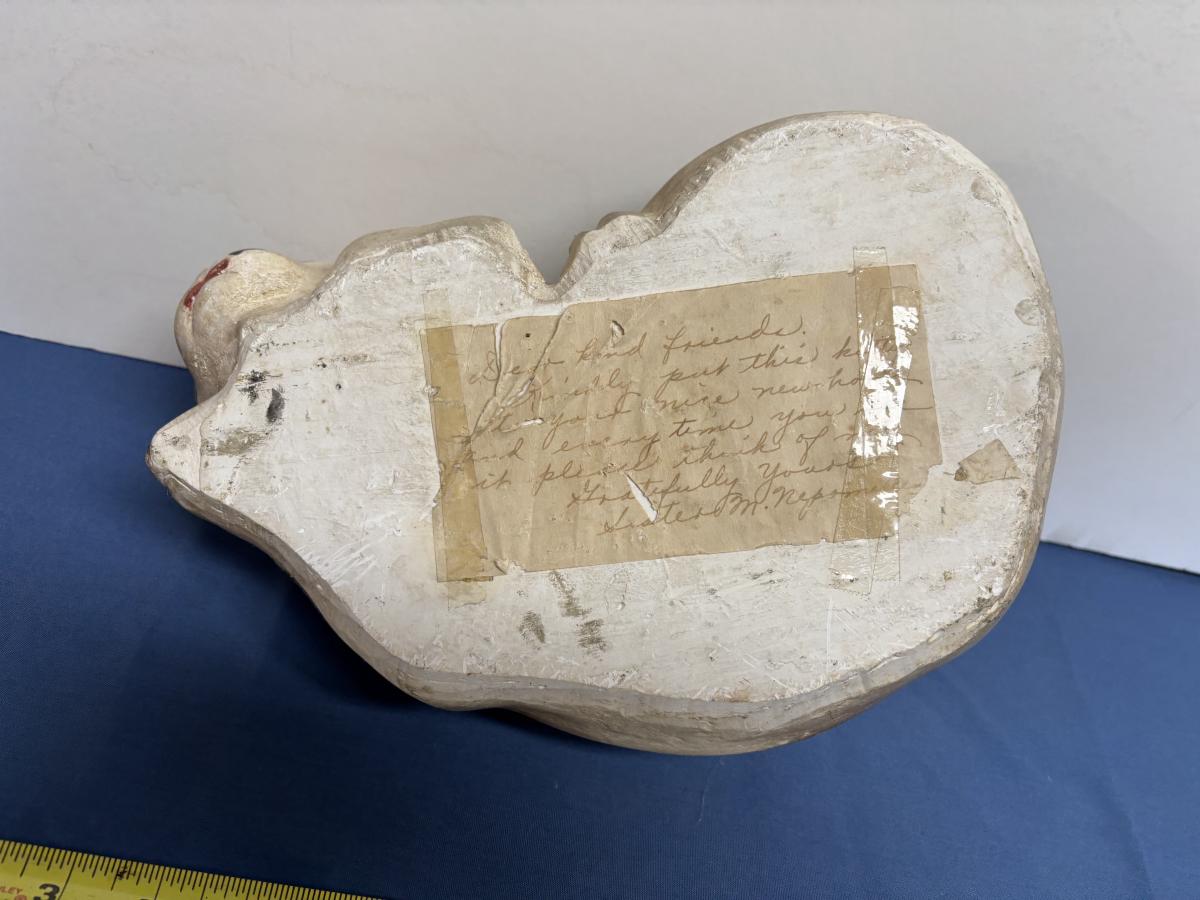 Dear kind friends.
Kindly put this
your nice new
and every time you
it please think of
Gratefully Yours
Sister M.
LEY
3